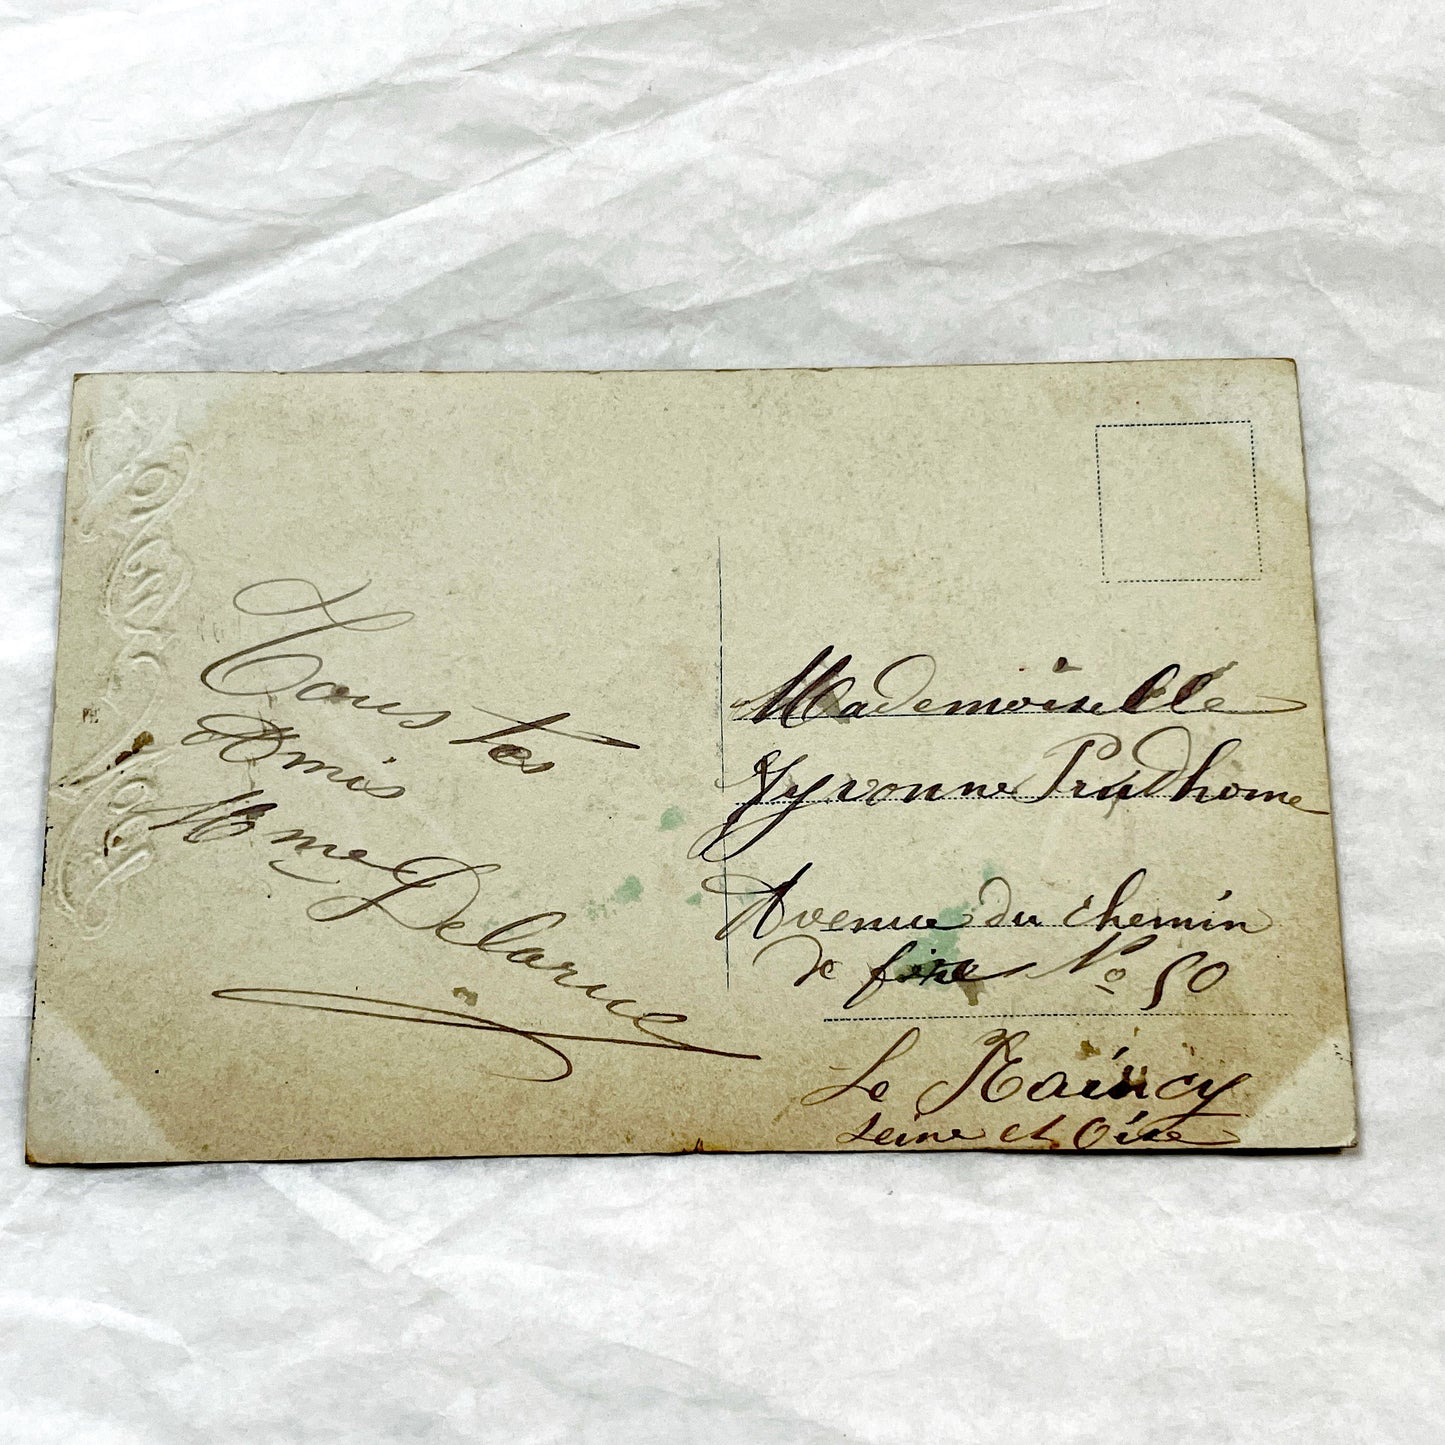 Tous tes
Amis
Mme Delarue
Mademoiselle
Yvonne Prudhome
Avenue du chemin
de fer No 50
Le Raincy
Seine et Oise